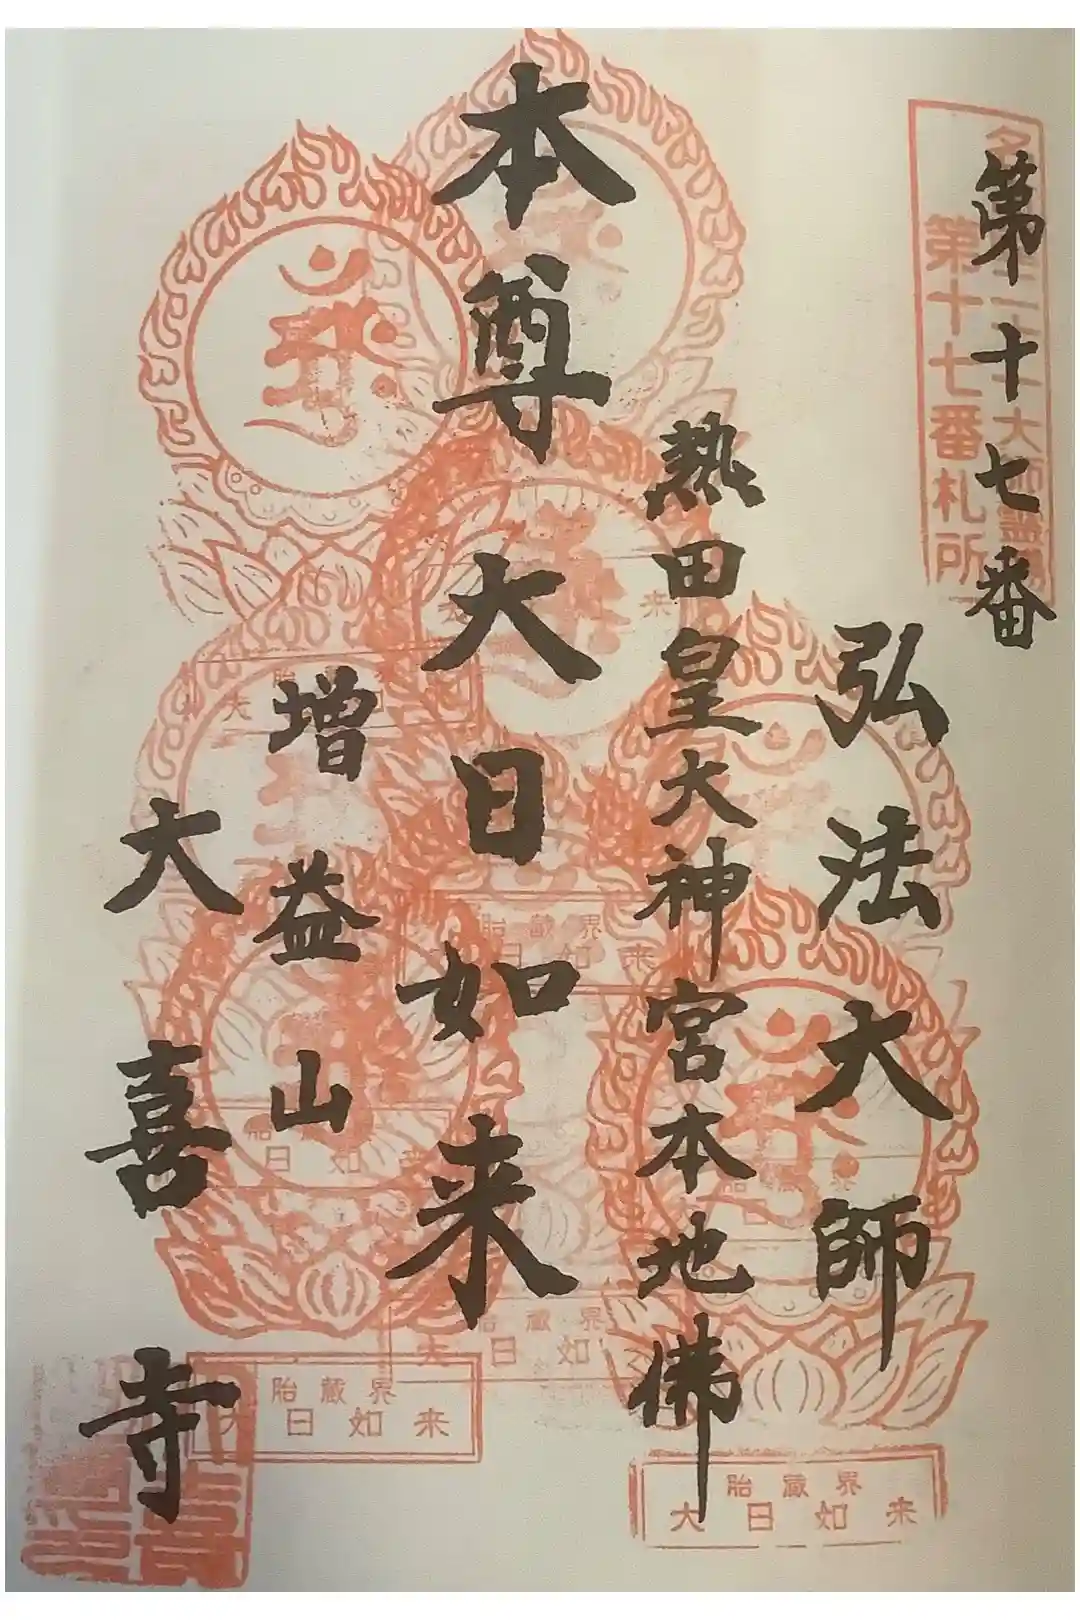 第十七番
第十七番札所
弘法大師
熱田皇大神宮本地佛
本尊大日如来
増益山
大喜寺
胎蔵界
大日如来
胎蔵界
大日如来
胎蔵界
大日如来
胎蔵界
大日如来